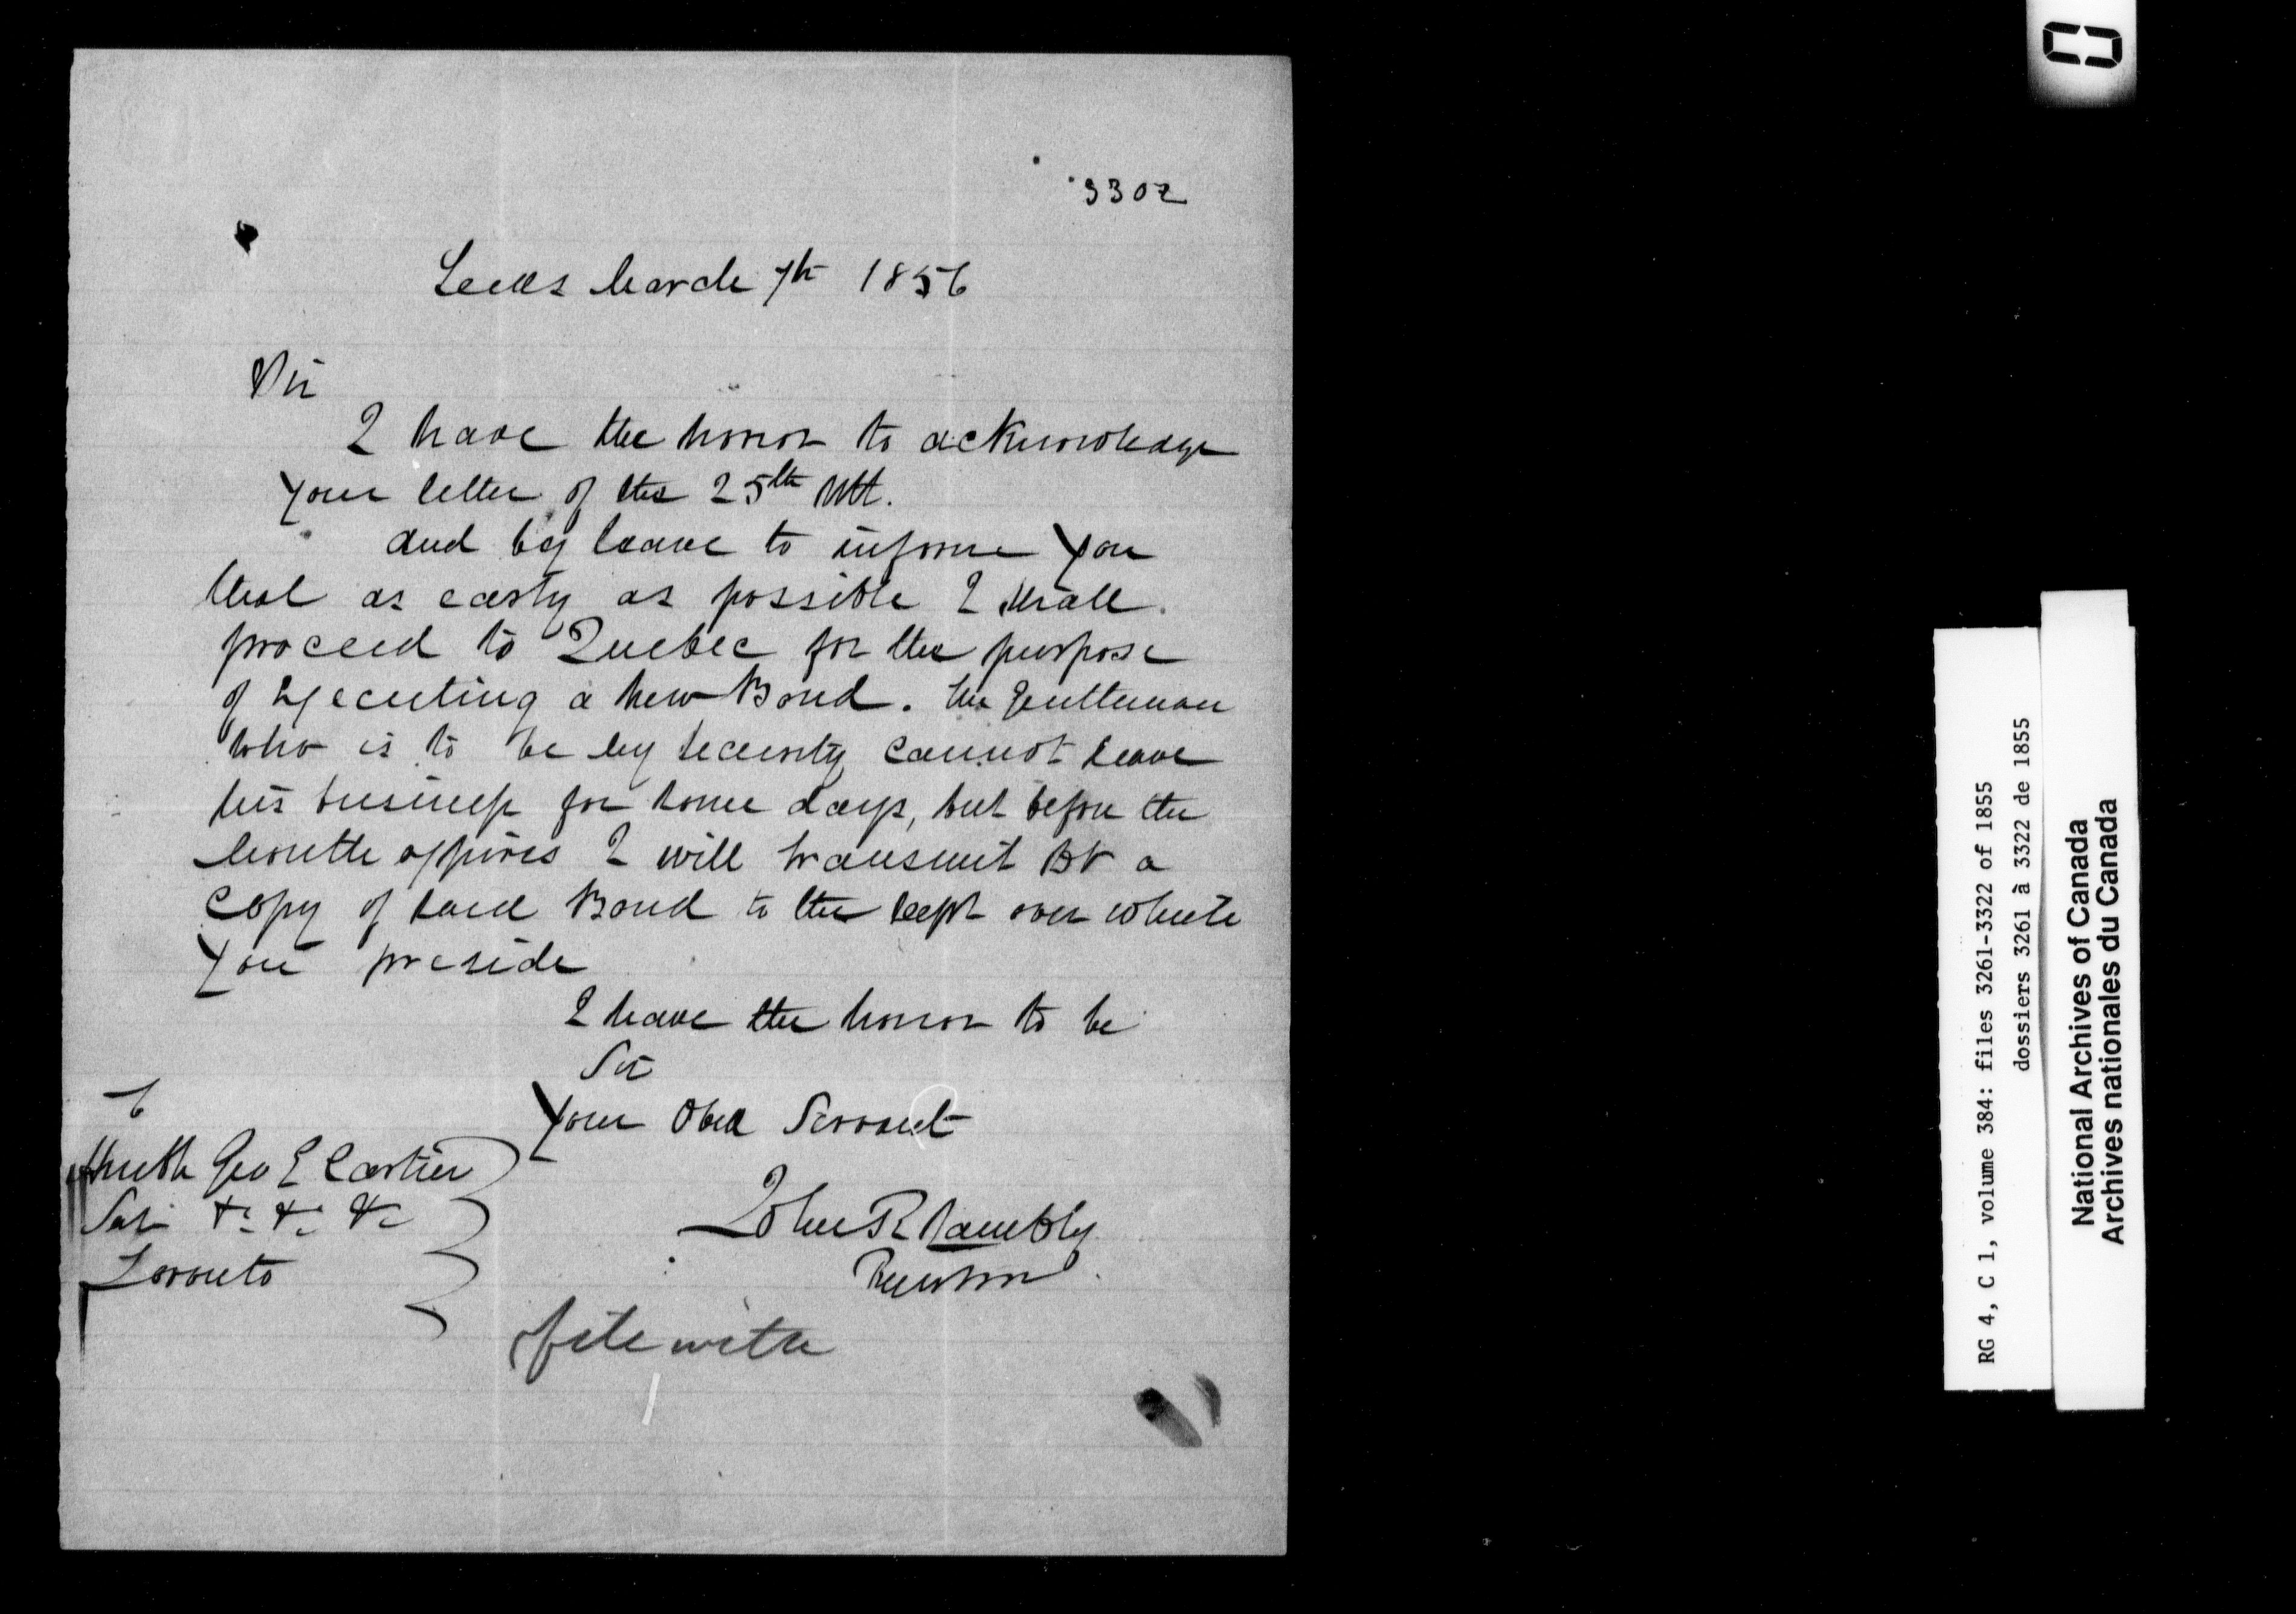 3302
Leeds March 7th 1856
Sir
I have the honor to acknowledge
your letter of the 25th Ult.
and beg leave to inform you
that as early as possible I shall
proceed to Quebec for the purpose
of executing a new Bond. the gentleman
who is to be my security cannot leave
his business for some days, but before the
month expires I will transmit a
copy of said Bond to the Dept over which
you preside
I have the honor to be
Sir
Your Obed Servant
To
Geo E Cartier
&c &c &c
Toronto
John R Lambly
file with
RG 4, C 1, volume 384: files 3261-3322 of 1855
dossiers 3261 à 3322 de 1855
National Archives of Canada
Archives nationales du Canada